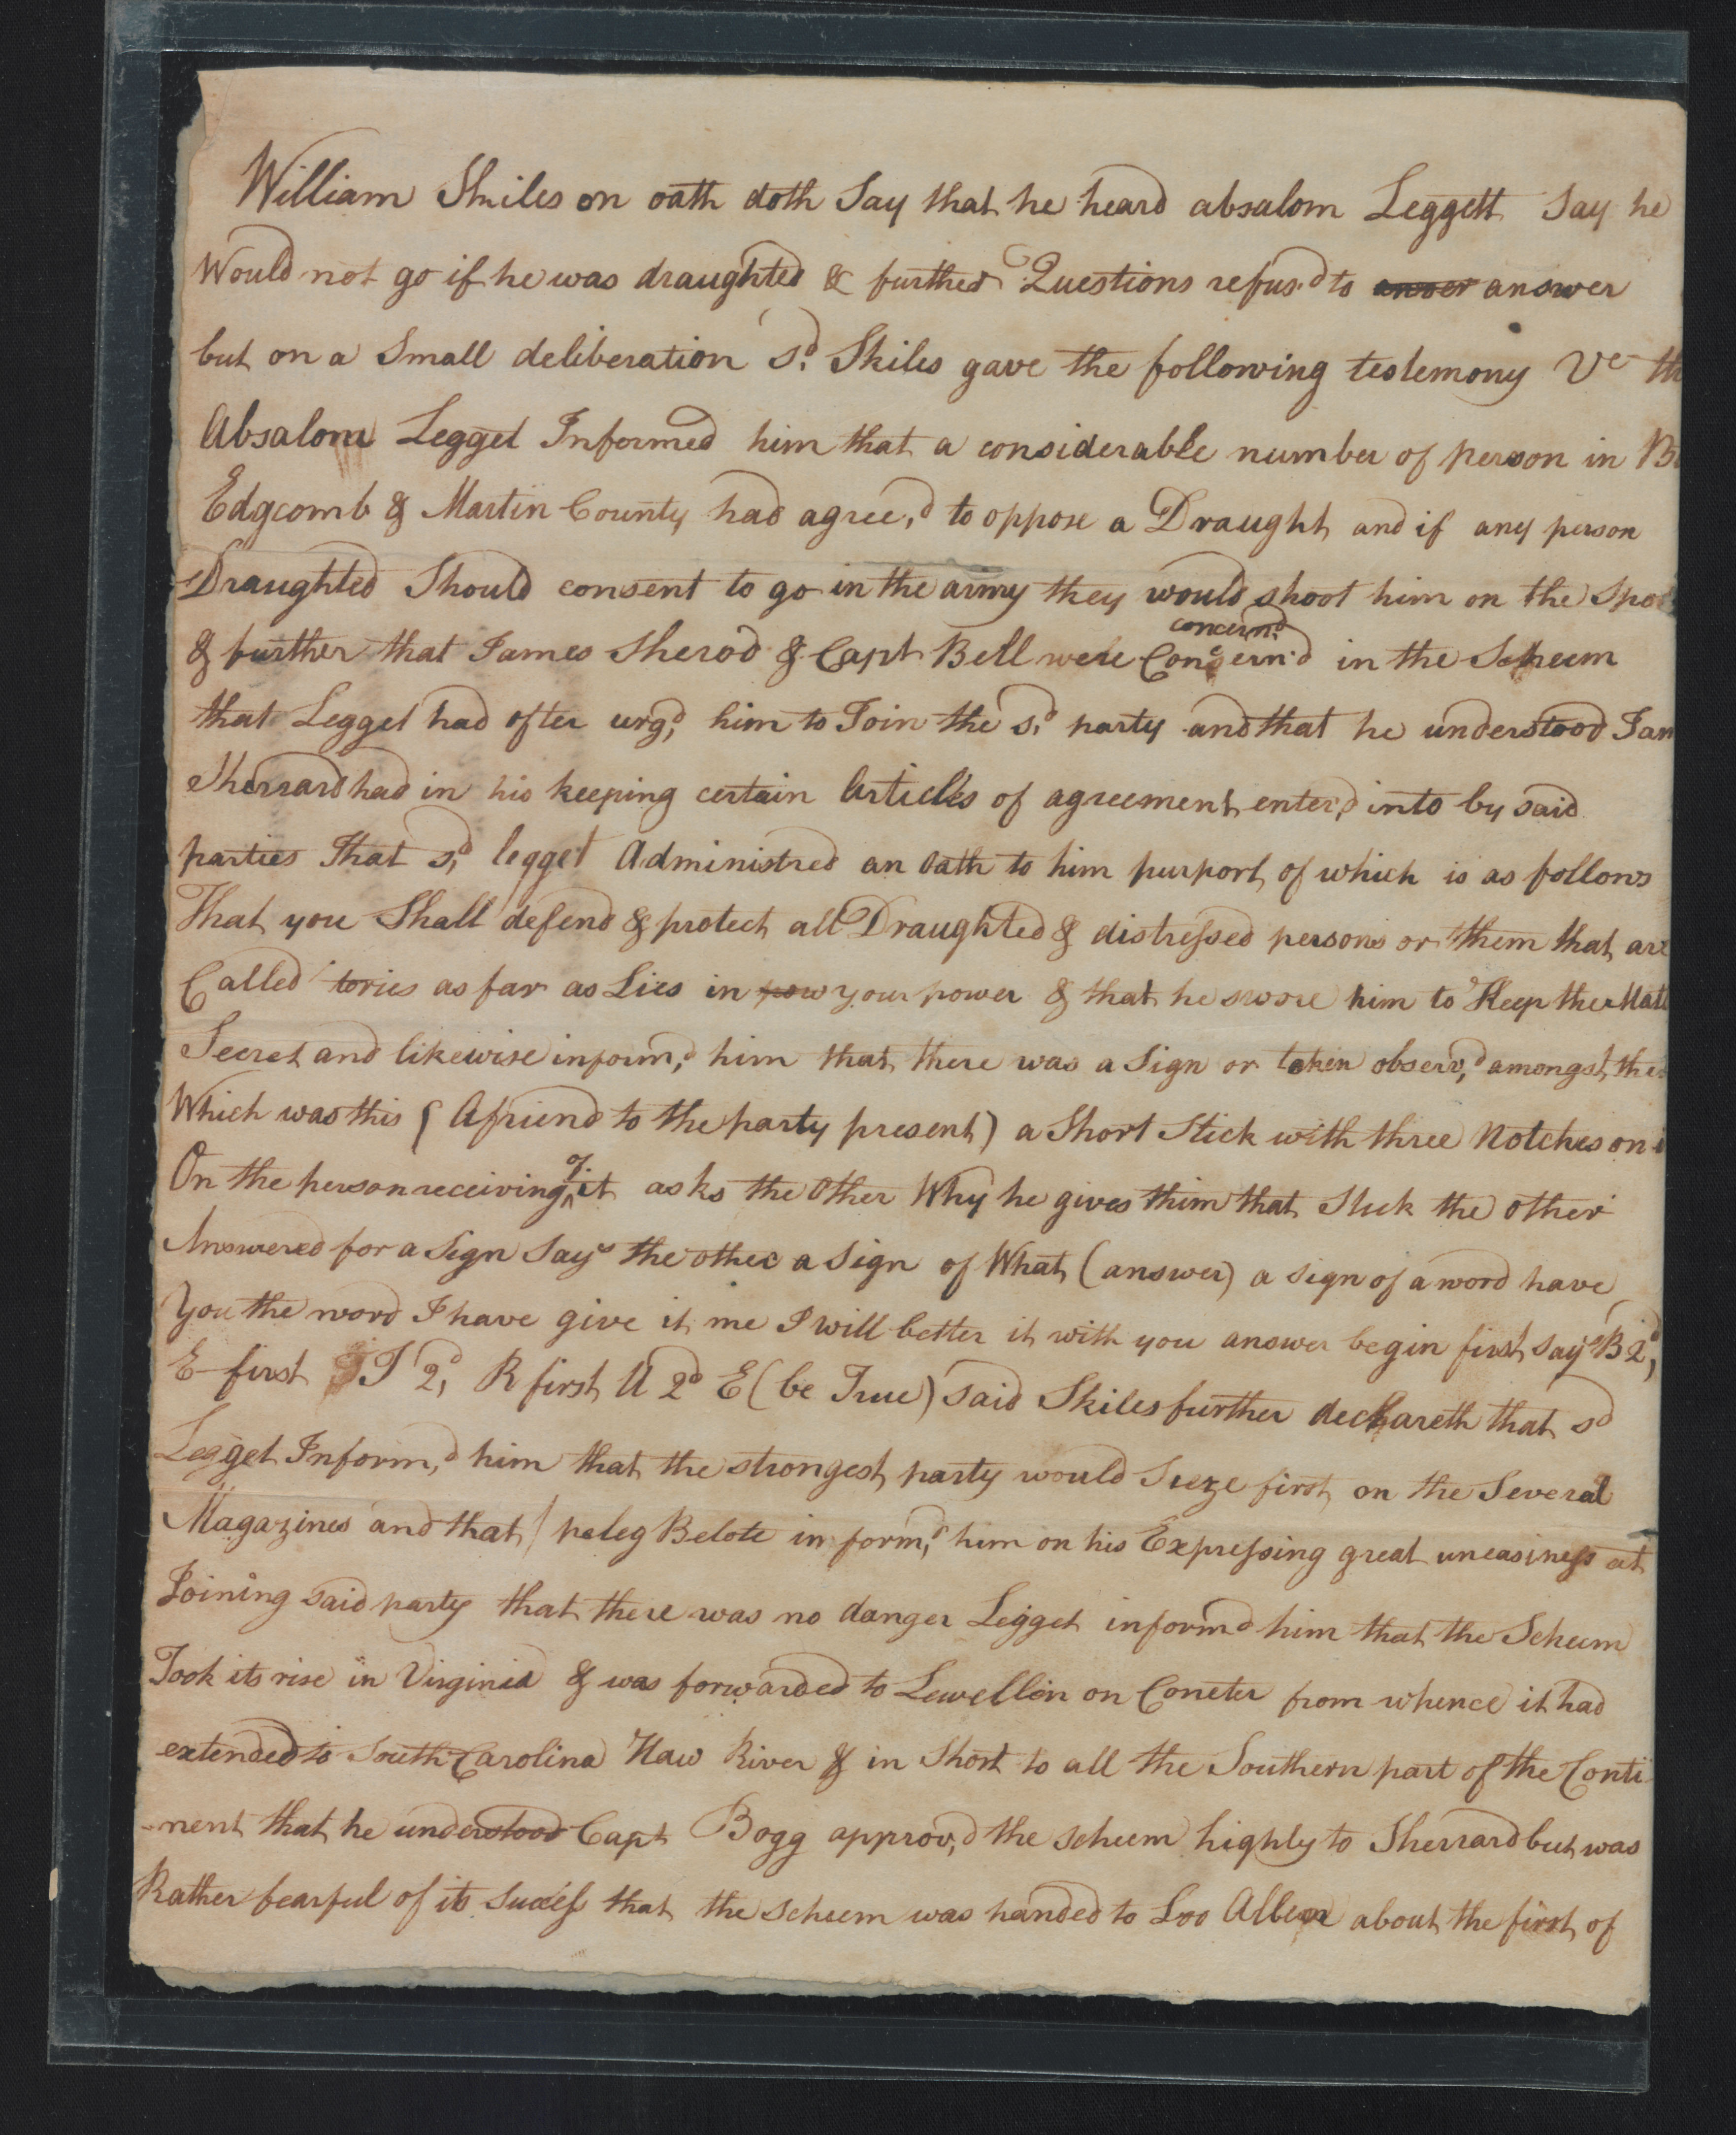 William Skiles on oath doth Say that he heard absalom Leggett Say he
Would not go if he was draughted & further Questions refus.d to answer answer
but on a Small deliberation s.d Skiles gave the following testemony Vc th
Absalom Legget Informed him that a considerable number of person in B
Edgcomb & Martin County had agree,d to oppose a Draught and if any person
Draughted Should consent to go in the army they would shoot him on the Spot
& further that James Sherod & Capt Bell were Concern.d concern.d in the Scheem
that Legget had after urg,d him to Join the s.d party and that he understood Jam
Sherrard had in his keeping certain Articles of agreement enter,d into by said
parties That s,d legget Administred an Oath to him purport of which is as follows
That you Shall defend & protect all Draughted & distressed persons or them that are
Called tories as far as Lies in pow your power & that he swore him to Keep the Matt
Secret and likewise inform,d him that there was a Sign or token observ,d amongst the
Which was this ( A friend to the party present) a Short Stick with three Notches on i
On the person receiving of it asks the Other Why he gives him that Stick the other
Answered for a Sign Says the other a Sign of What (answer) a sign of a word have
You the word I have give it me I will better it with you answer begin first says B 2,d
E first T 2,d R first U 2d E (be True) said Skiles further declareth that sd
Legget Inform,d him that the strongest party would Sieze first on the Several
Magazines and that peleg Belote inform,d him on his Expressing great uneasiness at
Joining said party that there was no danger Legget informd him that the Scheem
Took its rise in Virginia & was forwarded to Lewellen on Coneter from whence it had
extended to South Carolina Haw River & in Short to all the Southern part of the Conti
-nent that he understood Capt Bogg approv,d the scheem highly to Sherrard but was
Rather fearful of its Success that the scheem was handed to Loo about the first of